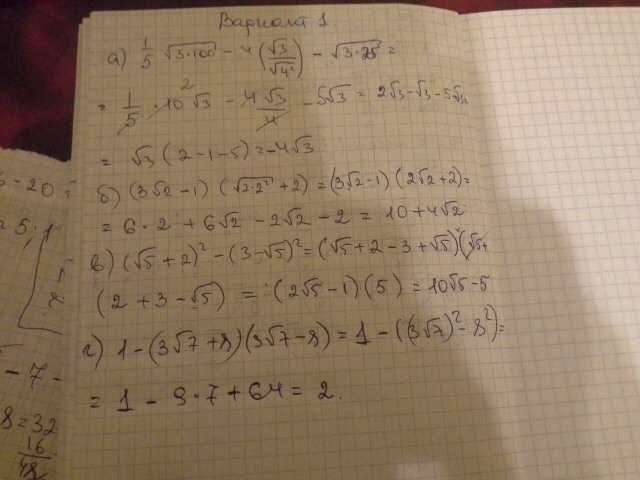 Вариант 1.
а) 1/5 √3·100 - 4(√3/√4²) - √3·25 =
2
= 1/5 · 10√3 - 4√3/4 - 5√3 = 2√3 - √3 - 5√3 =
= √3 (2-1-5) = -4√3
б) (3√2-1) (√2·2² +2) = (3√2-1) (2√2+2) =
= 6·2 + 6√2 - 2√2 - 2 = 10+4√2
в) (√5+2)² - (3-√5)² = (√5+2-3+√5) (√5+
(2+3-√5) = (2√5-1)(5) = 10√5-5
г) 1-(3√7+8)(3√7-8) = 1-((3√7)²-8²) =
= 1 - 9·7 + 64 = 2.
- 20
5,1
- 7 -
8=32
16
48